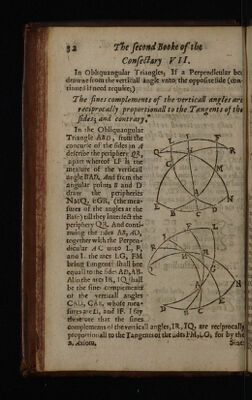 92 The second Booke of the
Consectary VII.
In Obliquangular Triangles, If a Perpendicular bee
drawne from the verticall angle unto the opposite side (con-
tinued if need require;)
The sines complements of the verticall angles are
reciprocally proportionall to the Tangents of the
sides; and contrary.
In the Obliquangular
Triangle ABD, from the
concurse of the sides in A
describe the periphery QR,
apart whereof is the
measure of the verticall
angle BAD, And from the
angular points B and D
draw the peripheries
(the mea-
sures of the angles at the
Base) till they intersect the
periphery QR. And conti-
nuing the sides AB, AD,
together with the Perpen-
dicular AC unto L, F,
and I. the arcs LG, FM
being Tangents shall bee
equall to the sides AD, AB.
Also the arcs IR, IQ shall
be the sines complements
of the verticall angles
CAD, CAB, whose mea-
sures are and IF. I say
therefore that the sines
complements of the verticall angles, IR, IQ, are reciprocally
proportionall to the Tangents of the sides FM, LG, for by the
8. Axiom, Sine